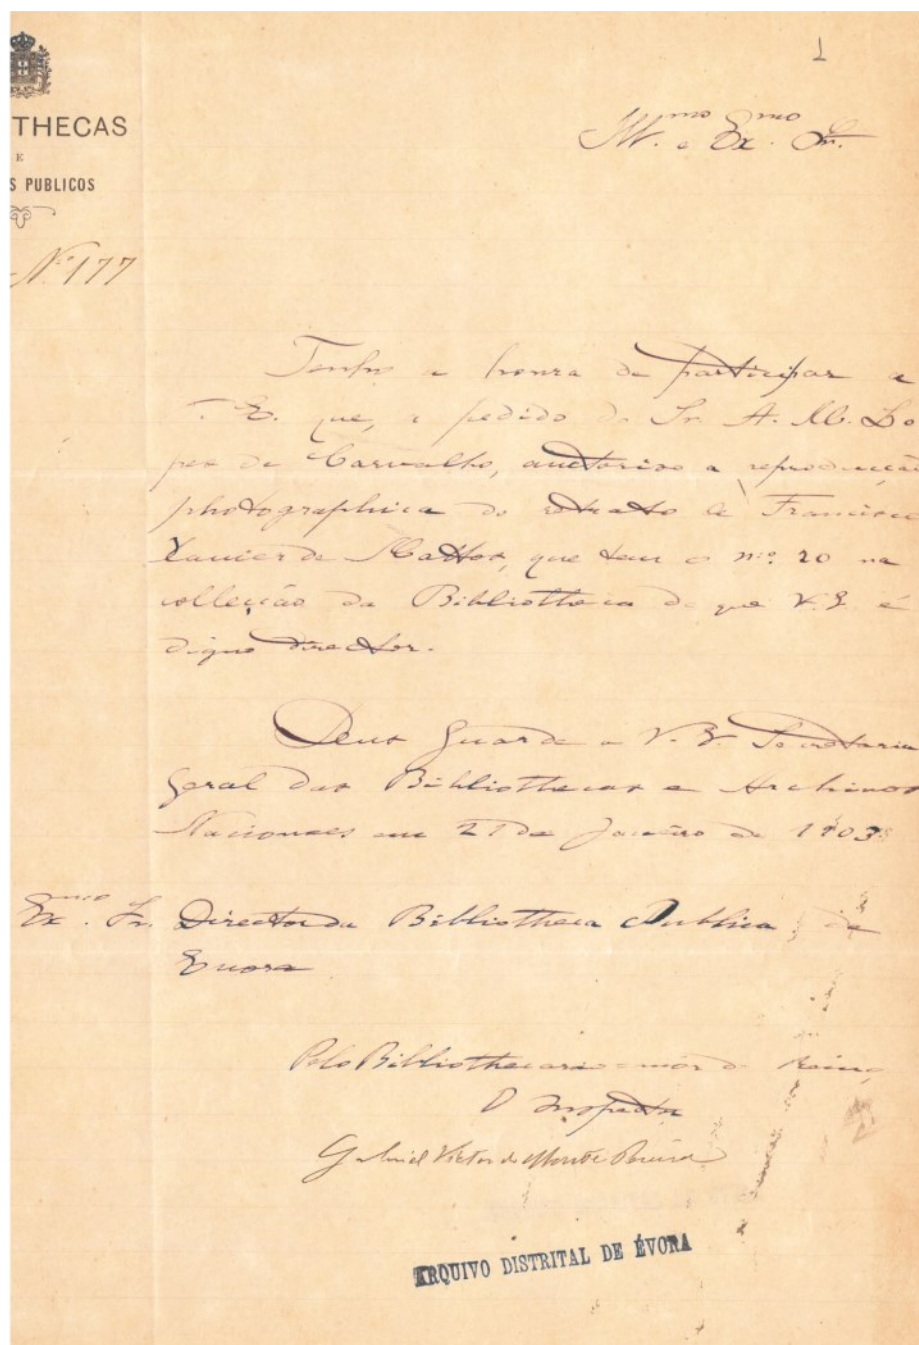 1
THECAS
E
S PUBLICOS
N.º 177
Ill.mo e Ex.mo Sr.
Tenho a honra de participar a
. E. que, a pedido do Sr. A. M. Lo
pes de Carvalho, auctoriso a reproducção
photographica do retrato de Francisco
Xavier de Mattos, que tem o n.º 20 na
collecção da Bibliotheca de que V. E. é
digno director.
Deus Guarde a V. E. Secretaria
Geral das Bibliothecas e Archivos
Nacionaes em 21 de Janeiro de 1903
Ex.mo Sr. Director da Bibliotheca Publica de
Evora
Pelo Bibliothecario-mór do Reino
O Inspector
Gabriel Victor do Monte Pereira
ARQUIVO DISTRITAL DE ÉVORA